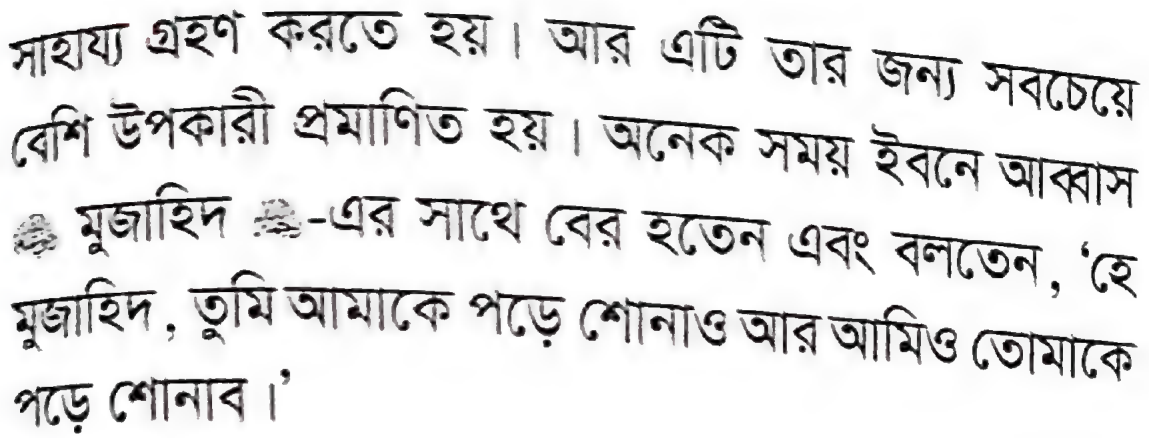 সাহায্য গ্রহণ করতে হয়। আর এটি তার জন্য সবচেয়ে
বেশি উপকারী প্রমাণিত হয়। অনেক সময় ইবনে আব্বাস
মুজাহিদ -এর সাথে বের হতেন এবং বলতেন, ‘হে
মুজাহিদ, তুমি আমাকে পড়ে শোনাও আর আমিও তোমাকে
পড়ে শোনাব।’